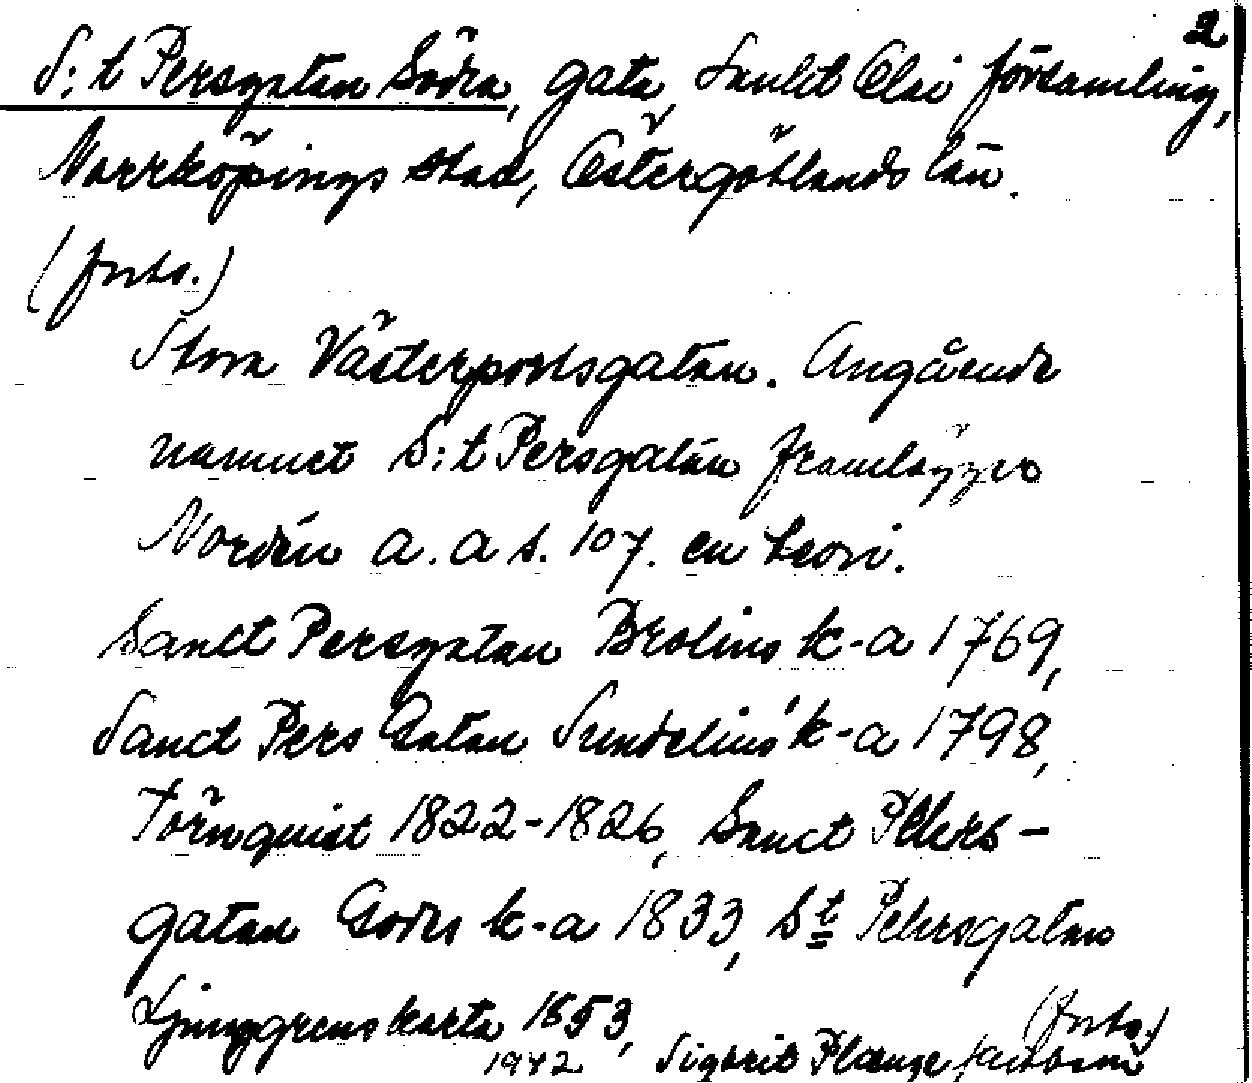 2
S:t Persgatan Södra, gata, Sankt Olai församling,
Norrköpings stad, Östergötlands län.
(forts.)
Stora Västerportsgatan. Angående
namnet S:t Persgatan framlägges
Nordén a. a s. 107. en teori.
Sanct Persgatan Brolins k-a 1769,
Sanct Pers Gatan Sundelius' k-a 1798,
Törnquist 1822-1826, Sanct Pehrs-
gatan Godes k-a 1833, St Pehrsgatan
Ljunggrens karta 1853,
(forts.)
1942 Sigbrit Plænge Jacobson